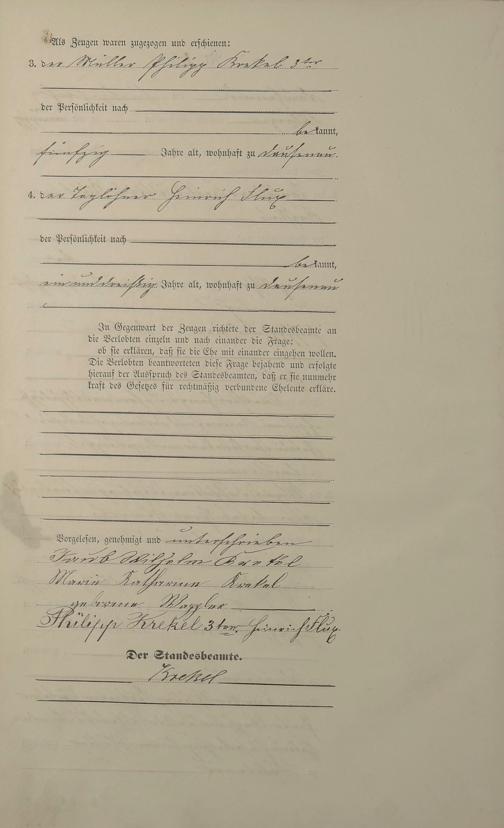 Als Zeugen waren zugezogen und erschienen:
3. der Müller Philipp Krekel 3ter
der Persönlichkeit nach
be kannt,
fünfzig Jahre alt, wohnhaft zu Dausenau.
4. der Taglöhner Heinrich Flux
der Persönlichkeit nach
be kannt,
einunddreißig Jahre alt, wohnhaft zu Dausenau
In Gegenwart der Zeugen richtete der Standesbeamte an
die Verlobten einzeln und nach einander die Frage:
ob sie erklären, daß sie die Ehe mit einander eingehen wollen.
Die Verlobten beantworteten diese Frage bejahend und erfolgte
hierauf der Ausspruch des Standesbeamten, daß er sie nunmehr
kraft des Gesetzes für rechtmäßig verbundene Eheleute erkläre.
Vorgelesen, genehmigt und unterschrieben
Wilhelm Krekel
Maria Katharina Krekel
geborene
Philipp Krekel 3ter Heinrich Flux
Der Standesbeamte.
Krekel